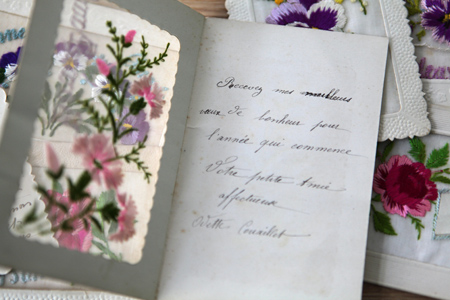 Recevez mes meilleurs
vœux de bonheur pour
l'année qui commence
Votre petite amie
affectueuse
Odette